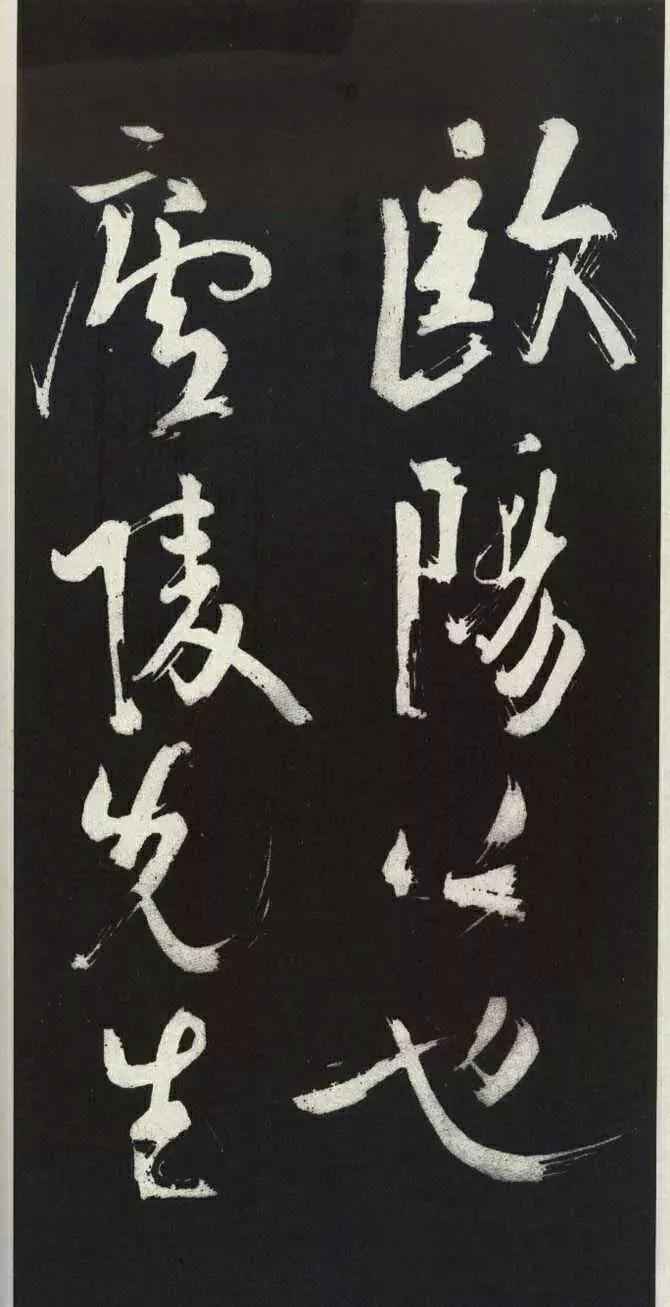 歐陽公也
廬陵先生